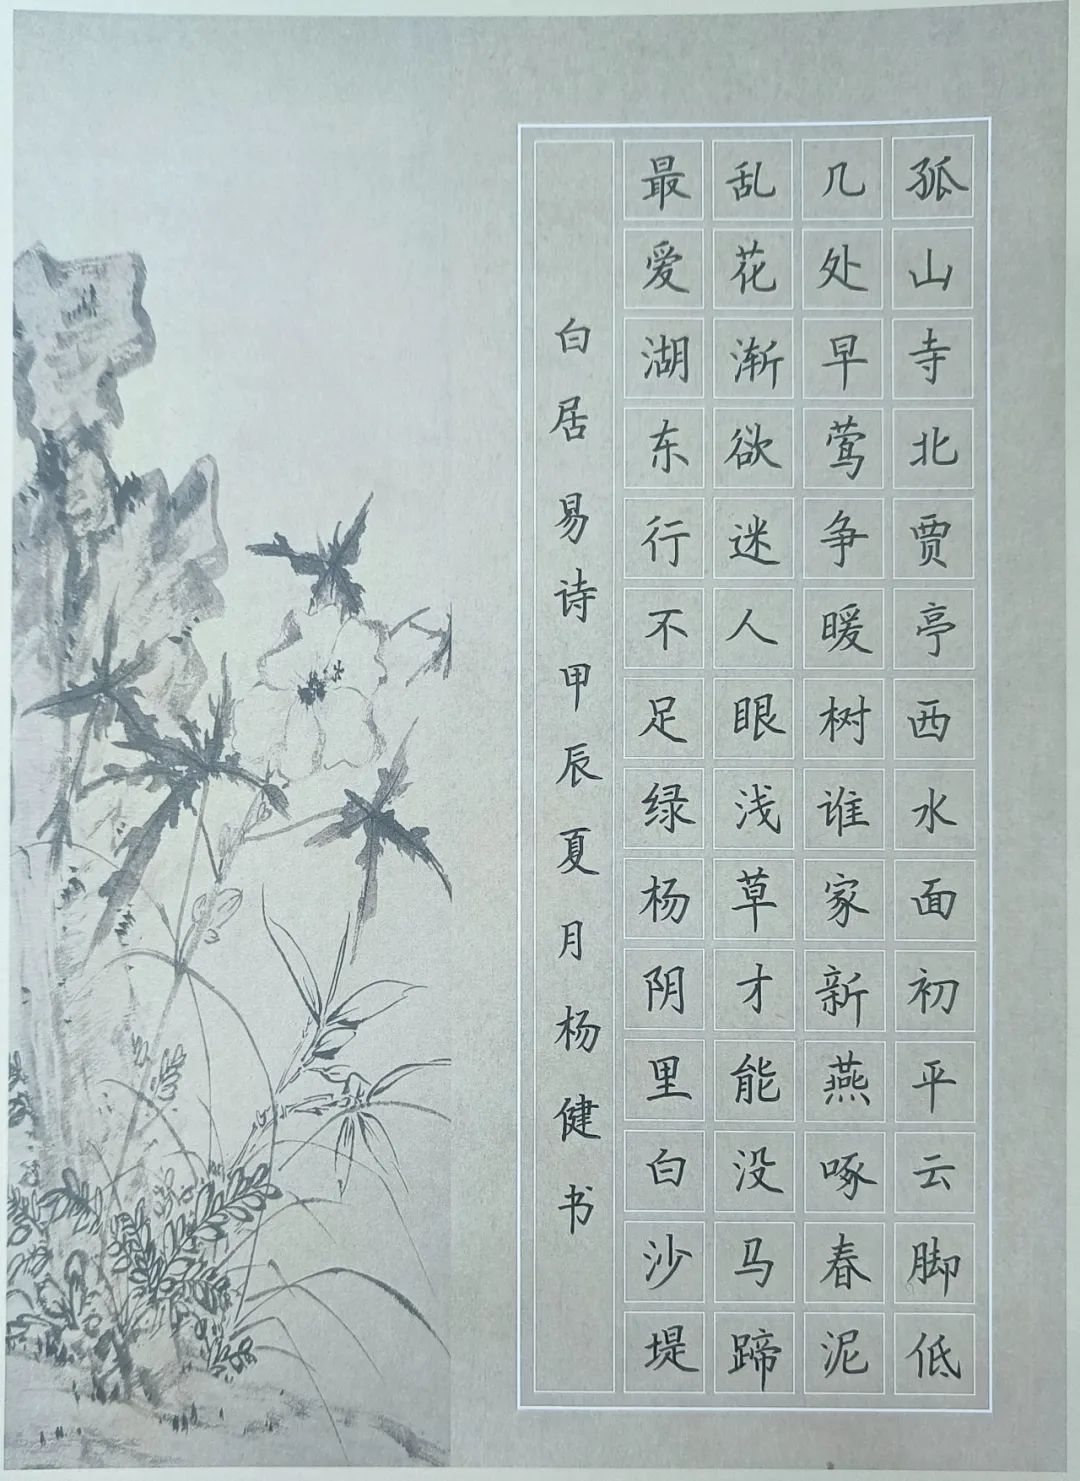 孤山寺北贾亭西水面初平云脚低
几处早莺争暖树谁家新燕啄春泥
乱花渐欲迷人眼浅草才能没马蹄
最爱湖东行不足绿杨阴里白沙堤
白居易诗甲辰夏月杨健书